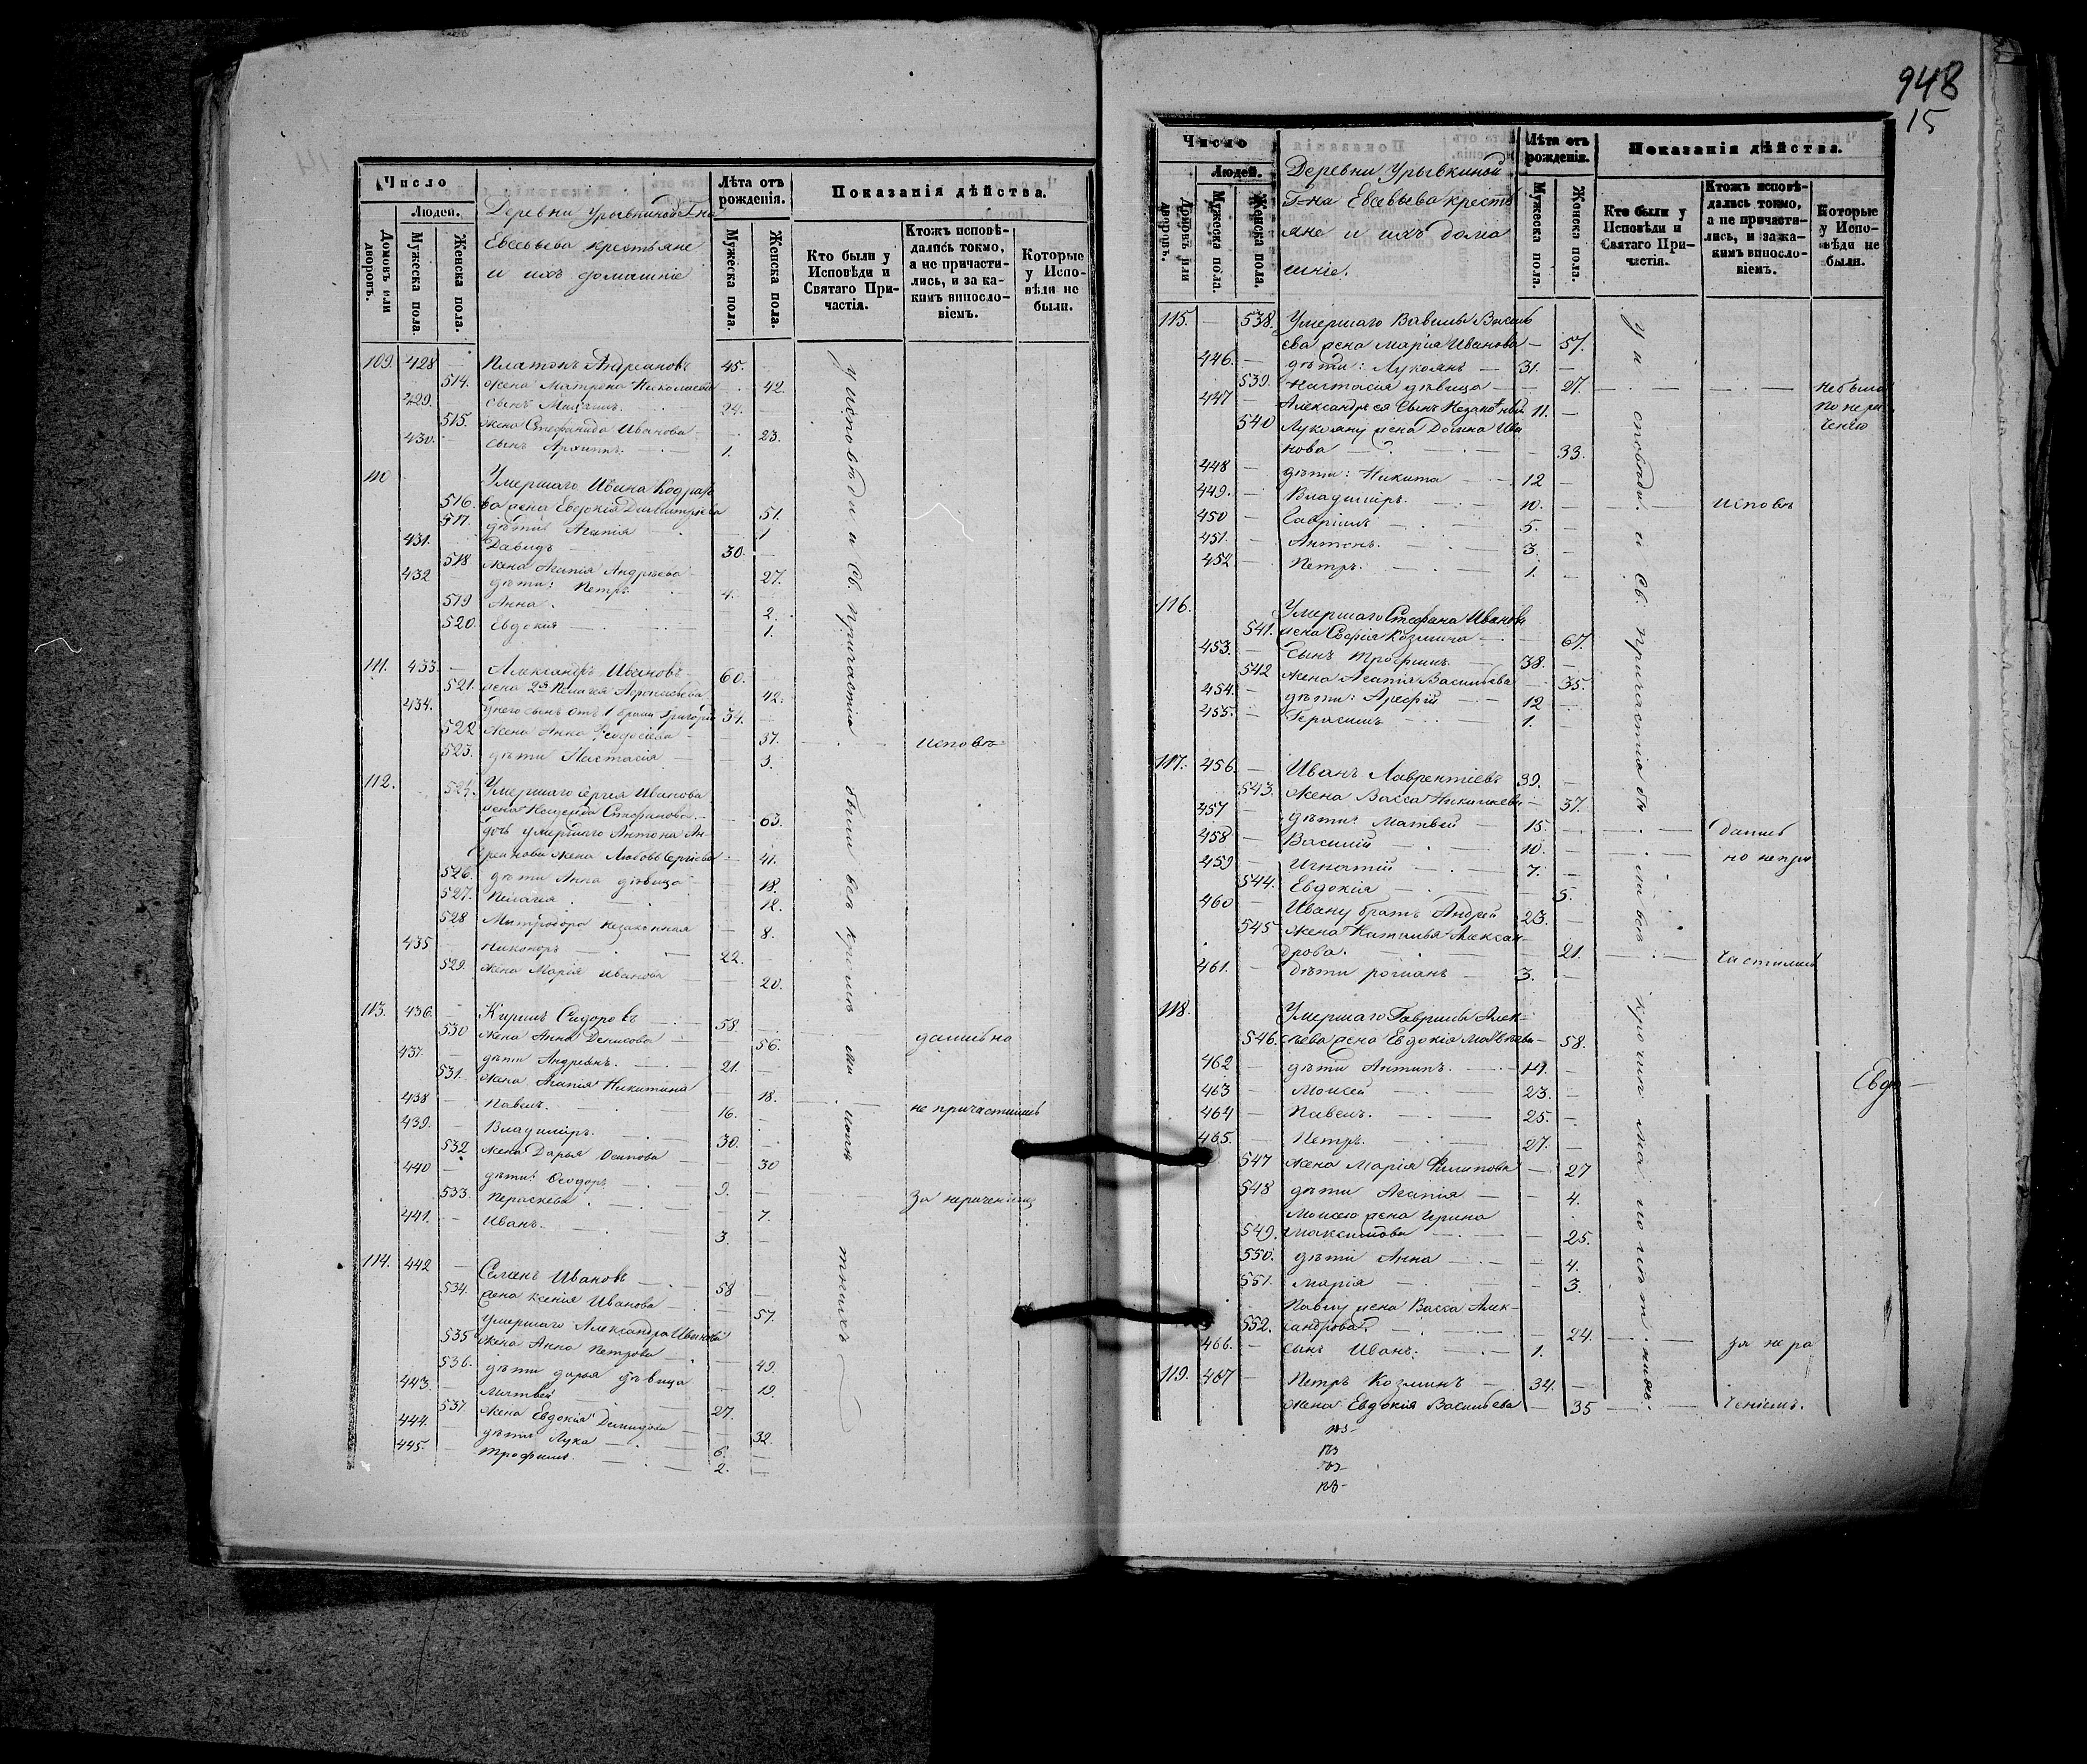 Число
Людей.
Домовъ или дворовъ.
Мужеска пола.
Женска пола.
Деревни Урывкиной Г-на
Евсевьева крестьяне
и ихъ домашніе
Лѣта отъ рожденія.
Мужеска пола.
Женска пола.
Показанія дѣйства.
Кто были у Исповѣди и Святаго Причастія.
Ктожъ исповѣдались токмо, а не причастились, и за какимъ винословіемъ.
Которые у Исповѣди не были.
109. 428 — Платонъ Андреановъ 45. —
514. жена Матрена Николаева — 42.
429. сынъ 24. —
515. жена Стефанида Иванова — 23.
430. сынъ Архипъ. 1.
110 Умершаго Ивана
516. жена Евдокія Димитріева 51.
517. дѣти Агапія — 1
431. Давидъ 30. —
518 жена Агапія Андреева 27.
432 дѣти: Петръ 4.
519 Анна. 2.
520. Евдокія 1.
111. 433. — Александръ Ивановъ 60. —
521. жена 2я Пелагея 42.
434. у него сынъ отъ 1 брака Григорій 34. —
522 жена Анна — 37.
523. дѣти Настасія — 3.
112. 524. Умершаго Сергея Иванова
жена Стефанова. — 63.
дочь умершаго Антона Ан-
дреанова жена Любовь Сергіева — 41.
526. дѣти Анна дѣвица 18.
527. Пелагея 12.
528 Митродора незаконная — 8.
435 Никоноръ 22. —
529. жена Марія Иванова — 20.
113. 436. — Кирилъ Сидоровъ 58. —
530 жена Анна Денисова — 56.
437. — дѣти Андреянъ. 21. —
531. жена Агапія Никитина — 18.
438 — Павелъ. 16. —
439. — Владиміръ. 30. —
532 жена Дарья Осипова — 30
440 — дѣти: Ѳеодоръ 9. —
533. Параскева. 7.
441. — Иванъ. 3. —
114. 442 — Иванов 58 —
534. жена Ксенія Иванова — 57.
Умершаго Александра Иванова
535 жена Анна Петрова — 49.
536. дѣти Дарья дѣвица — 19.
443. — Матвей 27. —
537. жена Евдокія Демидова — 32.
444. дѣти Лука 6. —
445. — Трофимъ. 2. —
у исповѣди и Св. причастія были всѣ кромѣ малолѣтнихъ
исповѣ
дались но
не причастились
за нерачениемъ
948
15
Число
Людей.
Домовъ или дворовъ.
Мужеска пола.
Женска пола.
Деревни Урывкиной
Г-на Евсевьева кресть
яне и ихъ дома
шніе.
Лѣта отъ рожденія.
Мужеска пола.
Женска пола.
Показанія дѣйства.
Кто были у Исповѣди и Святаго Причастія.
Ктожъ исповѣдались токмо, а не причастились, и за какимъ винословіемъ.
Которые у Исповѣди не были.
115. — 538. Умершаго Вавилы Василь
ева жена Марія Иванова — 57.
446. дѣти: Лукоянъ — 31. —
539. Настасія дѣвица — 27.
447 — Александръ ея сынъ 11. —
540 Лукояну жена Домна Ива
нова — 33.
448 — дѣти: Никита 12 —
449. — Владиміръ. 10. —
450 — Гавріилъ 5. —
451. — Антонъ. 3. —
452 — Петръ. 1. —
116. Умершаго Стефана Иванова
541. жена Софія Козмина — 67.
453. — сынъ Трофимъ 38. —
542 жена Агапія Васильева 35.
454. — дѣти: Арефій 12 —
455. — Герасимъ 1. —
117. 456. — Иванъ Лаврентіевъ 39. —
543. жена Васса — 37.
457 — дѣти: Матвей — 15. —
458 — Василій 10. —
459 — Игнатій 7. —
544. Евдокія 5.
460 — Ивану братъ Андрей 23. —
545 жена Наталья Алексан-
дрова. 21.
461. — дѣти Романъ 3. —
118. Умершаго Гаврилы Алек-
546. сѣева жена Евдокія Матвѣева — 58.
462 — дѣти Антипъ. 19. —
463 — Моисей 23. —
464 — Павелъ. 25. —
465. — Петръ. 27. —
547 жена Марія Филипова — 27
548 дѣти Агапія — 4.
Моисею жена Ирина
549. Максимова — 25.
550. дѣти Анна — 4.
551. Марія — 3.
Павлу жена Васса Алек-
552. сандрова. — 24.
466. — сынъ Иванъ. 1. —
119. 467 — Петръ Козминъ — 34. —
жена Евдокія Васильева — 35
у исповѣди и Св. причастія были всѣ кромѣ малолѣтнихъ.
исповѣ
дались
но непри
частились
за нера
ченіемъ.
не была
по нера
ченію
Евдо—